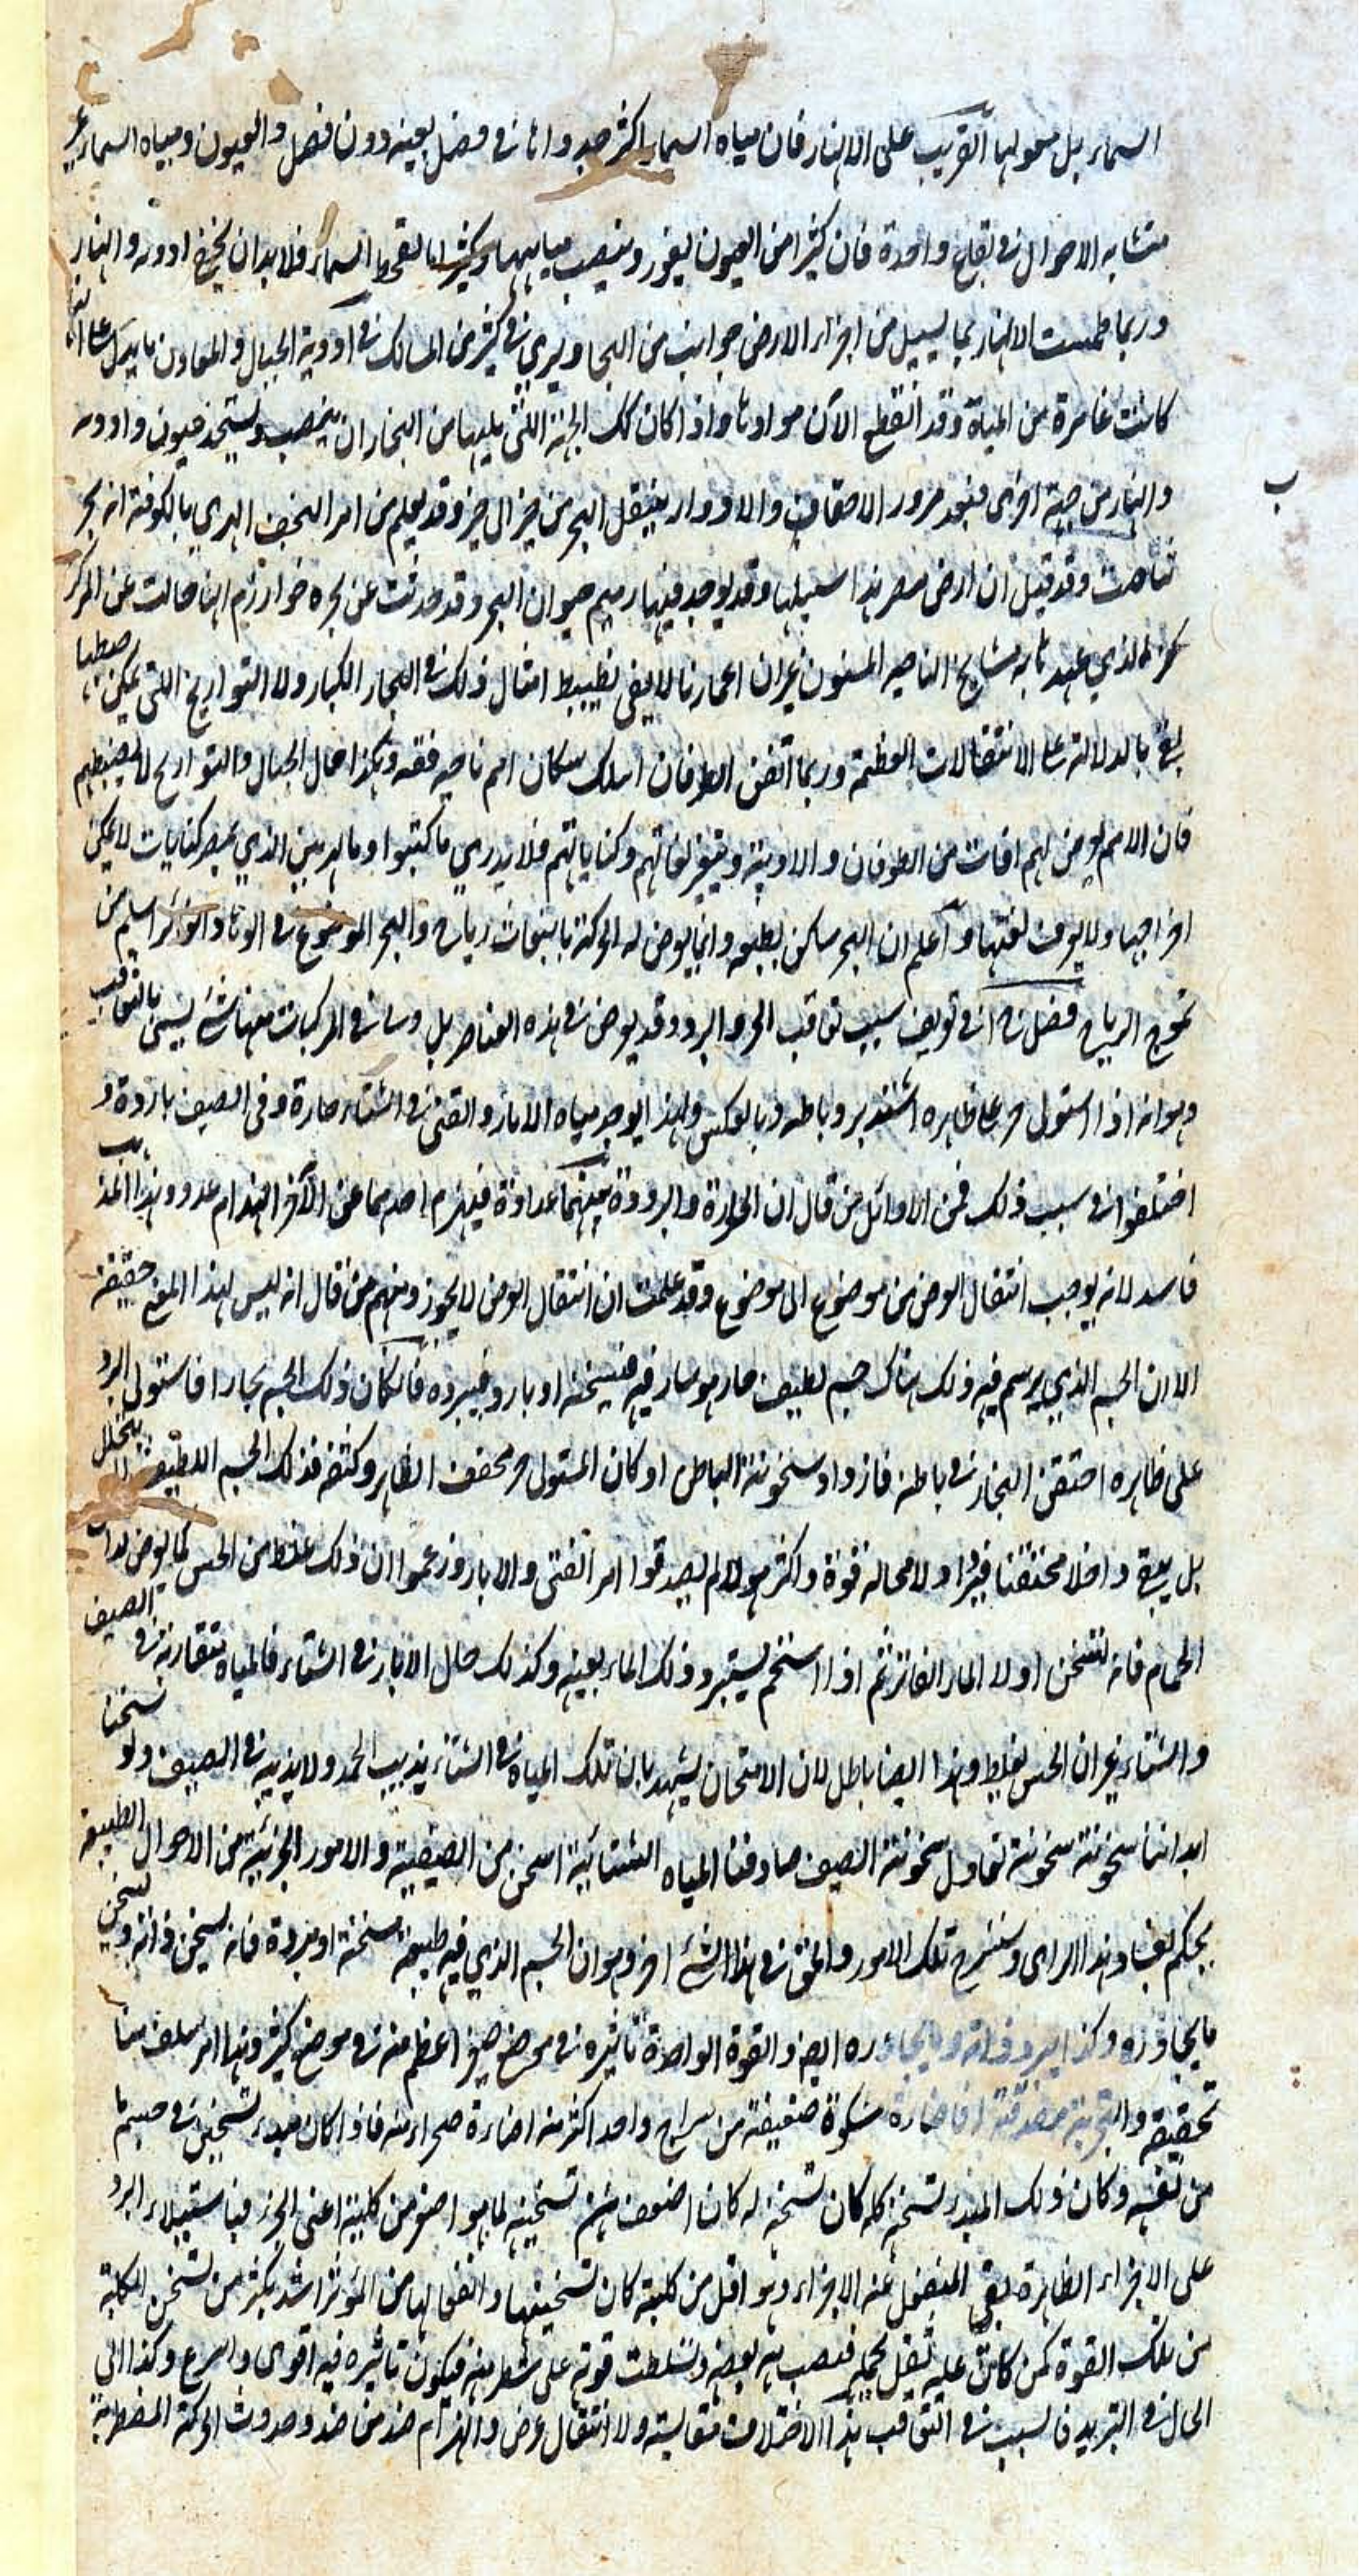 السماء بل معولها القريب على الانهار فان مياه السماء اكثر جدواها فى فصل بعينه دون فصل والعيون ومياه السماء غير
متشابه الاحوال فى بقاع واحدة فان كثيرا من العيون يغور وينضب مياهها وكثيرا ما تقحط السماء فلا بد ان يجف اودية وانهار
وربما طمست الانهار بما يسيل من اجزاء الارض جوانب من البحار ويرى فى كثير من المسالك فى اودية الجبال والمعاون ما يدل على انها
كانت غامرة من المياه وقد انقطع الان موادها واذا كان كك الجهة التى يليها من البحار ان ينضب ويستجد عيون واودية
وانهار من جهة اخرى فبعد مرور الاحقاب والادوار ينتقل البحر من حيز الى حيز وقد يعلم من امر النجف الذي بالكوفة انه بحر
ناضب وقد قيل ان ارض مصر هذا سبيلها وقد يوجد فيها رميم حيوان البحر وقد حدثت عن بحيره خوارزم انها حالت عن المركز
الذي عهدها به مشايخ الناحية المسنون غير ان اعمارنا لا يفى بضبط امثال ذلك فى البحار الكبار ولا التواريخ التى يمكن ضبطها
يفى بالدلالة على الانتقالات العظيمة وربما اتفق الطوفان اهلك سكان امم ناحية فقه وهكذا حال الجبال والتواريخ لا يضبطهم
فان الامم يعرض لهم افات من الطوفان والاوبئة وتتغير لغاتهم وكتاباتهم فلا يدرى ما كتبوا وما الهرمين الذي بمصر كتابات لا يمكن
اخراجها ولا يعرف لغتها واعلم ان البحر ساكن بطبعه وانما يعرض له الحركة بانبعاث رياح والبحر الموضوع فى الوهاد والغوائر اسلم من
تموج الرياح فصل فى تعريف سبب تعاقب الحر والبرد وقد يعرض فى هذه العناصر بل وسائر المركبات منها شئ يسمى بالتعاقب
وهو انه اذا استولى حر على ظاهره اشتد برد باطنه وبالعكس ولهذا يوجد مياه الابار والقنى فى الشتاء حارة وفى الصيف باردة و
اختلفوا فى سبب ذلك فمن الاوائل من قال ان الحرارة والبرودة بينهما عداوة فينهزم احدهما عن الاخر انهزام عدو وهذا المذهب
فاسد لانه يوجب انتقال العرض من موضوع الى موضوع وقد علمت ان انتقال العرض لا يجوز ومنهم من قال انه ليس لهذا المعنى حقيقة
الا ان الجسم الذي يرسم فيه ذلك هناك جسم لطيف حار هو سار فيه فيسخنه او بارد فيبرده فان كان ذلك الجسم بخارا فاستولى البرد
على ظاهره احتقن البخار فى باطنه فازداد سخونة الباطن او كان المستولى حر مجفف الظاهر وكثفه فذلك الجسم اللطيف لا يتحلل
بل يبقى داخلا محتقنا فيزداد لا محالة قوة واكثر هؤلاء لم يصدقوا امر القنى والابار وزعموا ان ذلك غلط من الحس كما يعرض لداخل
الحمام فانه يتسخن اولا الماء الفاتر ثم اذا استحم يستبرد ذلك الماء بعينه وكذلك حال الابار فى الشتاء فالمياه متقاربة فى الصيف
والشتاء غير ان الحس يغلط وهذا ايضا باطل لان الامتحان يشهد بان تلك المياه فى الشتاء يذيب الجمد ولا يذيبه فى الصيف ولو سخنا
ابداننا سخونة تعادل سخونة الصيف صادفنا المياه الشتائية اسخن من الصيفية والامور الجزئية من الاحوال الطبيعية
يحكم بفساد هذا الراى وسنشرح تلك الامور والحق فى هذا الشئ اخر وهو ان الجسم الذي فيه طبيعة مسخنة او مبردة فانه يسخن ذاته ويسخن
ما يجاوره وكذا يبرد ذاته وما يجاوره ايضا والقوة الواحدة تاثيره فى موضع صغير اعظم منه فى موضع كثير وهذا امر سلف منا
تحقيقه والتجربة مصدقة اذ اضاءة مشكوة ضعيفة من سراج واحد اكثر منه اضاءة صحراء منه فاذا كان مبدء تسخين فى جسم ما
من نفسه وكان ذلك المبدء تسخنه كله كان تسخنه له كان اضعف من تسخينه لما هو اصغر من كليته اعنى الجزء فباستيلاء البرد
على الاجزاء الظاهرة يبقى المنفعل عنه الاجزاء وهو اقل من كليته كان تسخينها وانفعالها من المؤثر اشد بكثير من تسخن الكلية
من تلك القوة كمن كان عليه ثقل يحمله فنصب به بعضه وتسلطت قوته على شطر منه فيكون تاثيره فيه اقوى واسرع وكذا الى
الحال فى التبريد فالسبب فى التعاقب هذا الاختلاف مقايسته ولا انتقال عرض وانهزام ضد من ضد وحدوث الحركة المضطربة
ب